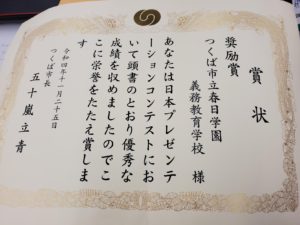 賞状
奨励賞
つくば市立春日学園
義務教育学校 様
あなたは日本プレゼンテ
ーションコンテストにお
いて頭書のとおり優秀な
成績を収めましたのでこ
こに栄誉をたたえ賞しま
す
令和四年十一月二十五日
つくば市長
五十嵐立青